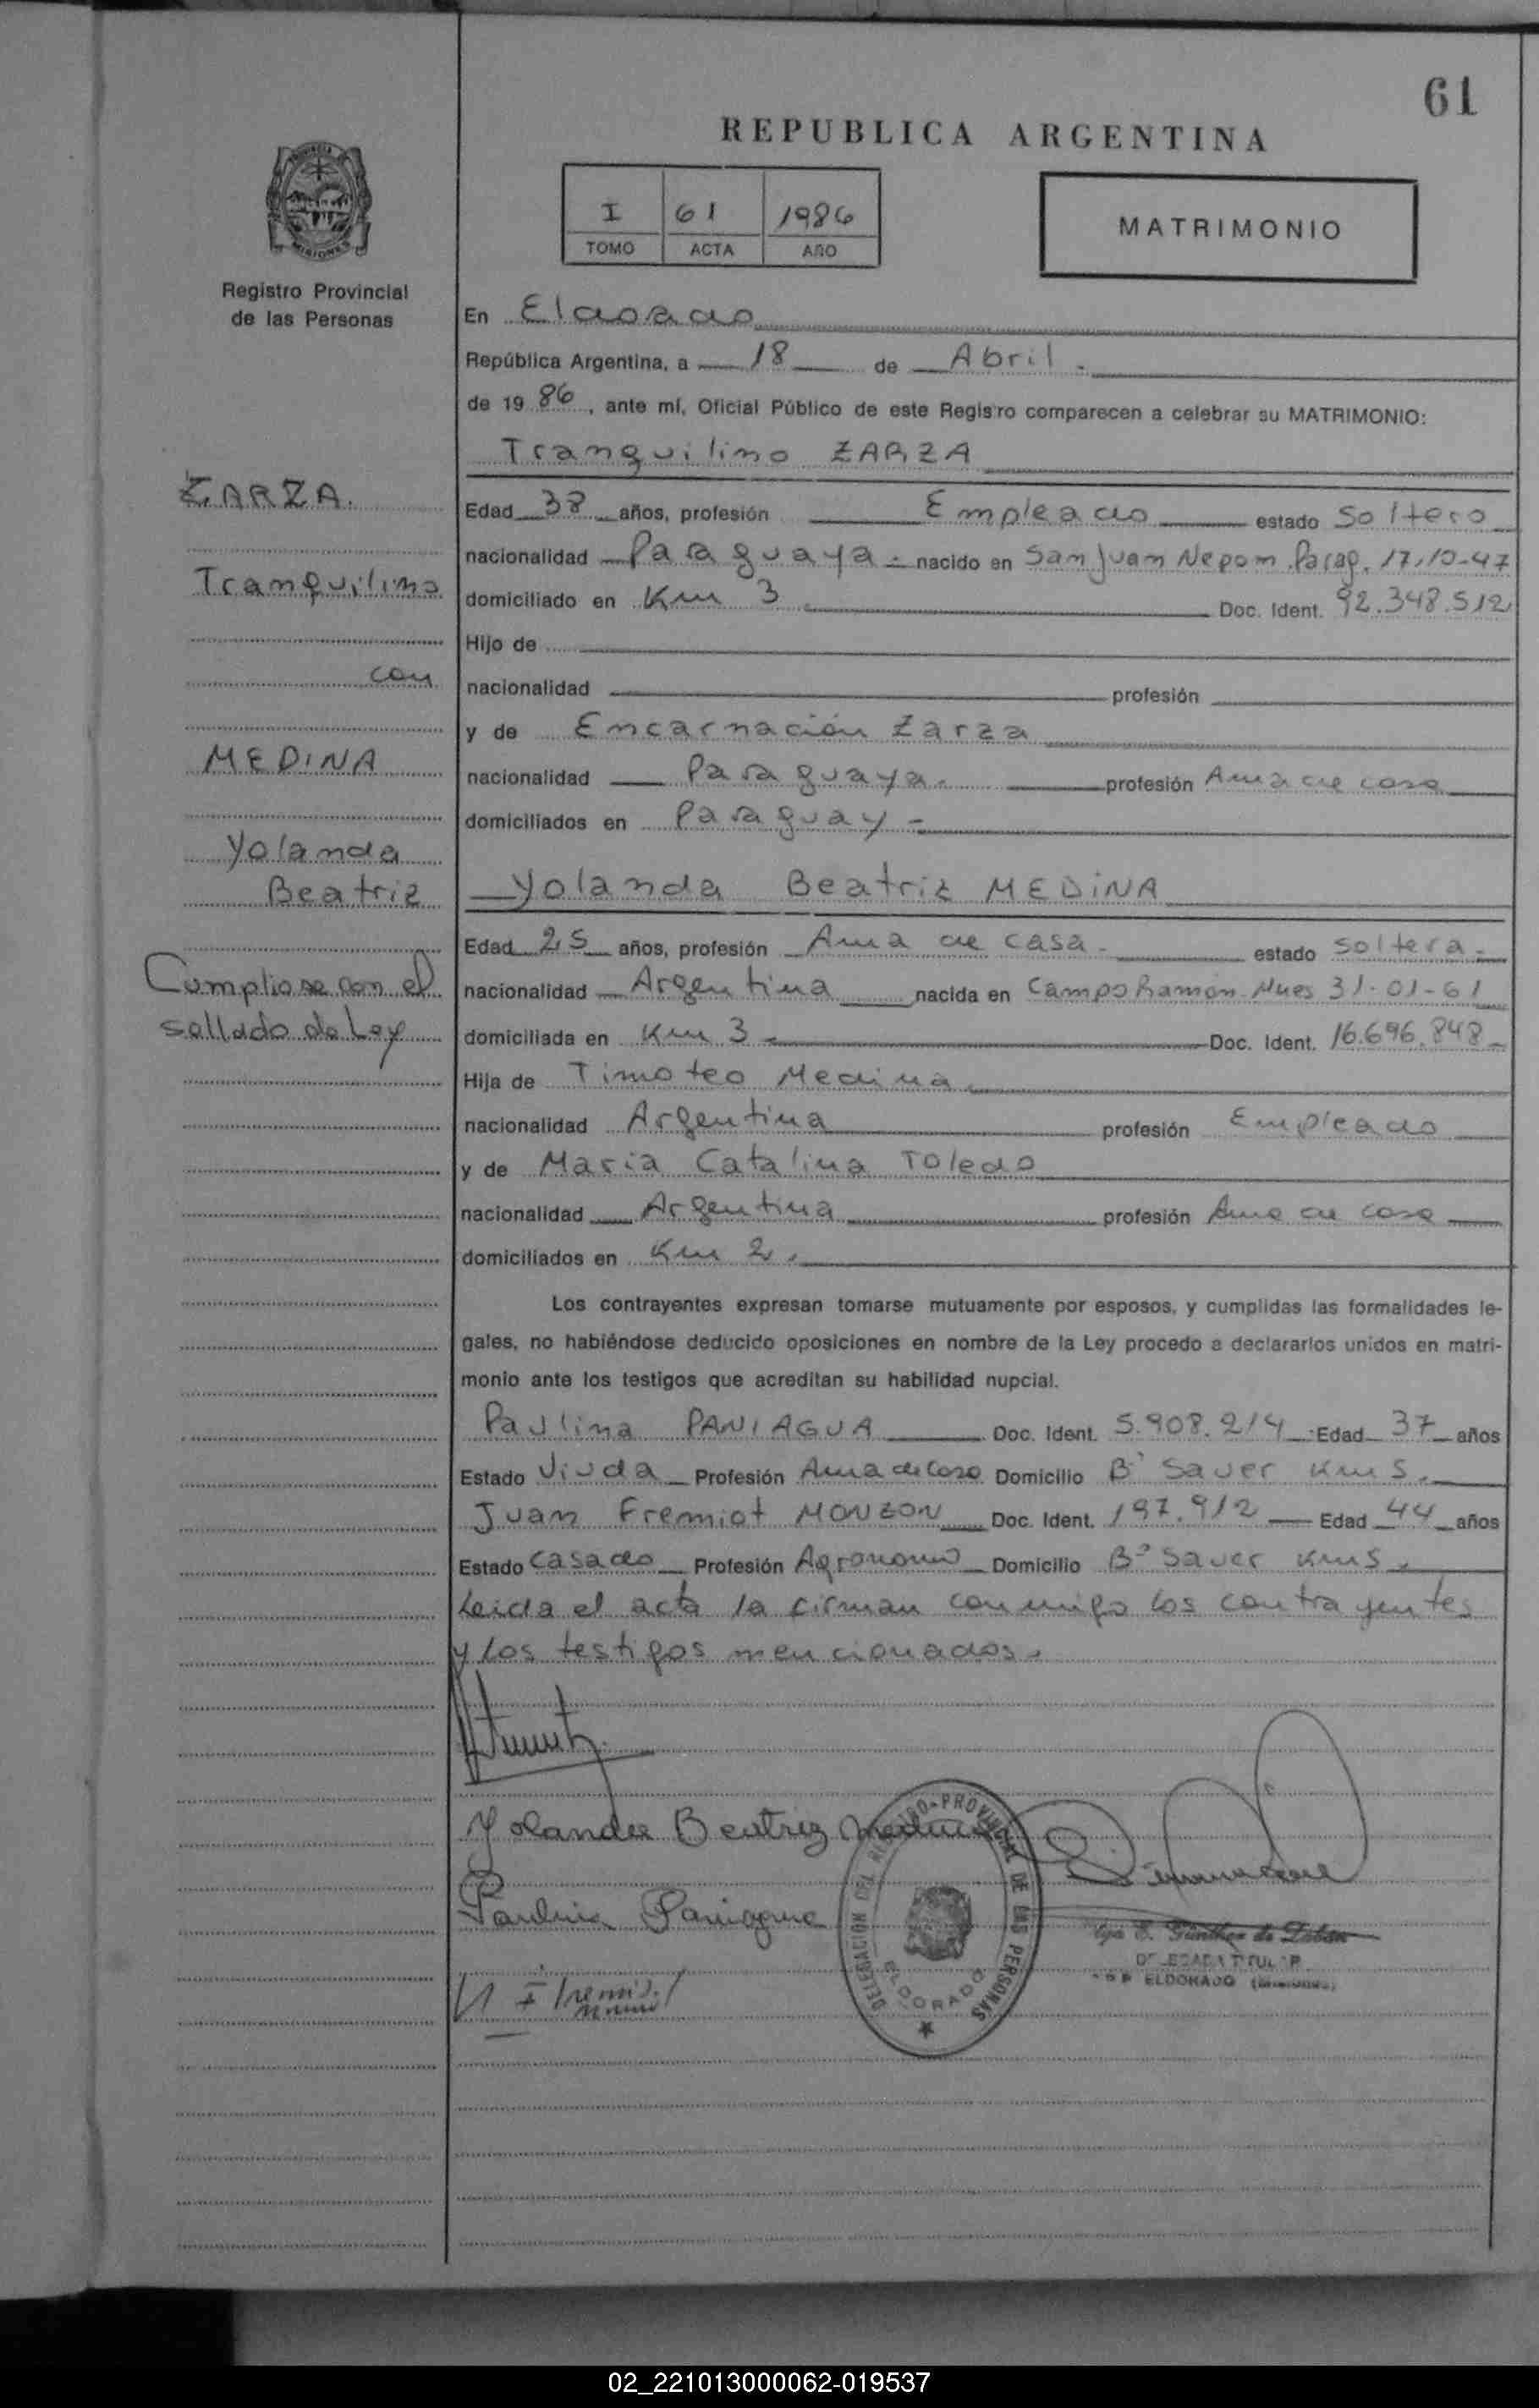 61
REPUBLICA ARGENTINA
PROVINCIA DE
MISIONES
Registro Provincial
de las Personas
I 61 1986
TOMO ACTA AÑO
MATRIMONIO
En Eldorado
República Argentina, a 18 de Abril.
de 1986, ante mí, Oficial Público de este Registro comparecen a celebrar su MATRIMONIO:
Tranquilino ZARZA
Edad 38 años, profesión Empleado estado Soltero
nacionalidad Paraguaya.- nacido en San Juan Nepom. Parag. 17-10-47
domiciliado en Km 3. Doc. Ident. 92.348.512
Hijo de
nacionalidad profesión
y de Encarnación Zarza
nacionalidad Paraguaya. profesión Ama de casa
domiciliados en Paraguay -
Yolanda Beatriz MEDINA
Edad 25 años, profesión Ama de casa. estado soltera.
nacionalidad Argentina nacida en Campo Ramón Mnes 31-01-61
domiciliada en Km 3. Doc. Ident. 16.696.848
Hija de Timoteo Medina
nacionalidad Argentina profesión Empleado
y de Maria Catalina Toledo
nacionalidad Argentina profesión Ama de casa
domiciliados en Km 2.
Los contrayentes expresan tomarse mutuamente por esposos, y cumplidas las formalidades le-
gales, no habiéndose deducido oposiciones en nombre de la Ley procedo a declararlos unidos en matri-
monio ante los testigos que acreditan su habilidad nupcial.
Paulina PANIAGUA Doc. Ident. 5.908.214 Edad 37 años
Estado Viuda Profesión Ama de Casa Domicilio B° Sauer Km 5.
Juan Fremiot MONZON Doc. Ident. 197.912 Edad 44 años
Estado Casado Profesión Agronomo Domicilio B° Sauer Km 5.
Leida el acta la firman conmigo los contrayentes
y los testigos mencionados.
Yolanda Beatriz Medina
Paulina Paniagua
DELEGACION DEL REGISTRO PROVINCIAL DE LAS PERSONAS
ELDORADO
DELEGADA TITULAR
ELDORADO (Misiones)
ZARZA.
Tranquilino
con
MEDINA
Yolanda
Beatriz
Cumpliose con el
sellado de Ley
02_221013000062-019537